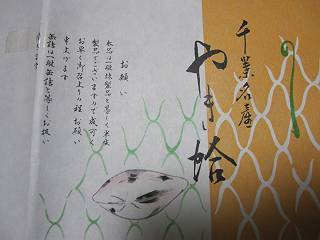 千葉名産
やき蛤
お願い
本品は一般抹製品と等しく半生
製品でございますので成可く
お早く御召上り程お願い
申上げます
缶詰は一般缶詰と等しくお扱い